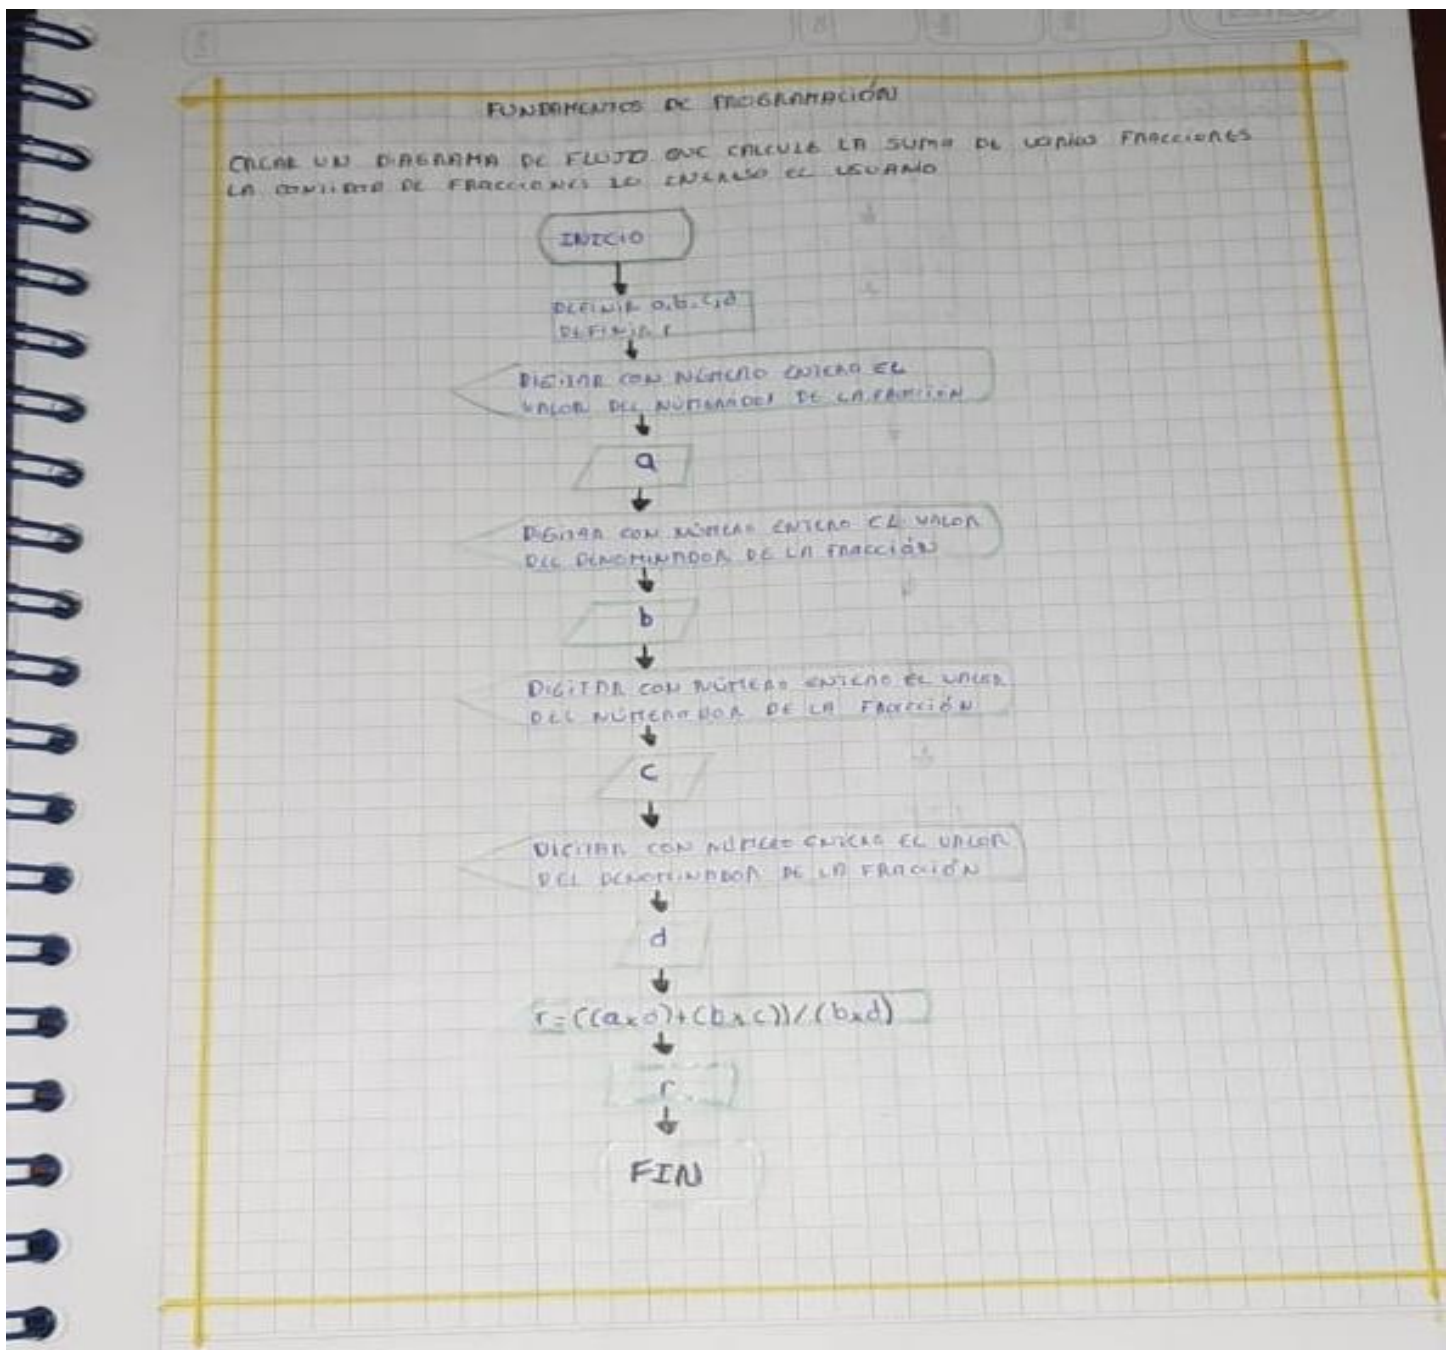 FUNDAMENTOS DE PROGRAMACIÓN
CREAR UN DIAGRAMA DE FLUJO QUE CALCULE LA SUMA DE VARIAS FRACCIONES
LA CANTIDAD DE FRACCIONES LO INGRESO EL USUARIO
INICIO
DEFINIR a,b,c,d
DEFINIR r
DIGITAR CON NÚMERO ENTERO EL
VALOR DEL NÚMERADOR DE LA FRACCIÓN
a
DIGITAR CON NÚMERO ENTERO EL VALOR
DEL DENOMINADOR DE LA FRACCIÓN
b
DIGITAR CON NÚMERO ENTERO EL VALOR
DEL NÚMERADOR DE LA FRACCIÓN
c
DIGITAR CON NÚMERO ENTERO EL VALOR
DEL DENOMINADOR DE LA FRACCIÓN
d
r=((axd)+(bxc))/(bxd)
r
FIN